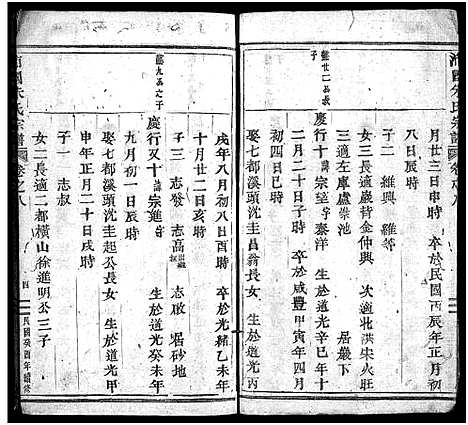 月廿三日申時　卒於民國丙辰年正月初
八日辰時
子二　維興　維等
女三長適巖背金仲興　次適北洪宋火旺
三適左庫盧崇池　居巖下
慶行十諱宗望字泰洋　生於道光辛巳年十
月二十日戌時　卒於咸豐甲寅年四月
初四日巳時
娶七都溪頭沈圭昌翁長女　生於道光丙
戌年八月初八日酉時　卒於光緒乙未年
十二月廿二日亥時
子三　志發　志高　志敢　居砂地
慶行又十諱宗進字　生於道光癸未年
九月初一日辰時
娶七都溪頭沈圭起公長女　生於道光甲
申年正月二十日戌時
子一　志叔
女二長適二都橫山徐進明公三子
宗譜 卷之八
四
民國癸酉年續修